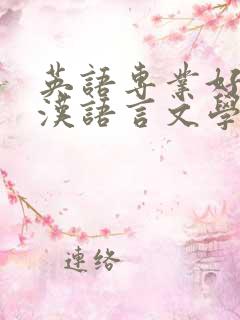 英語専業好
漢語言文學
連络